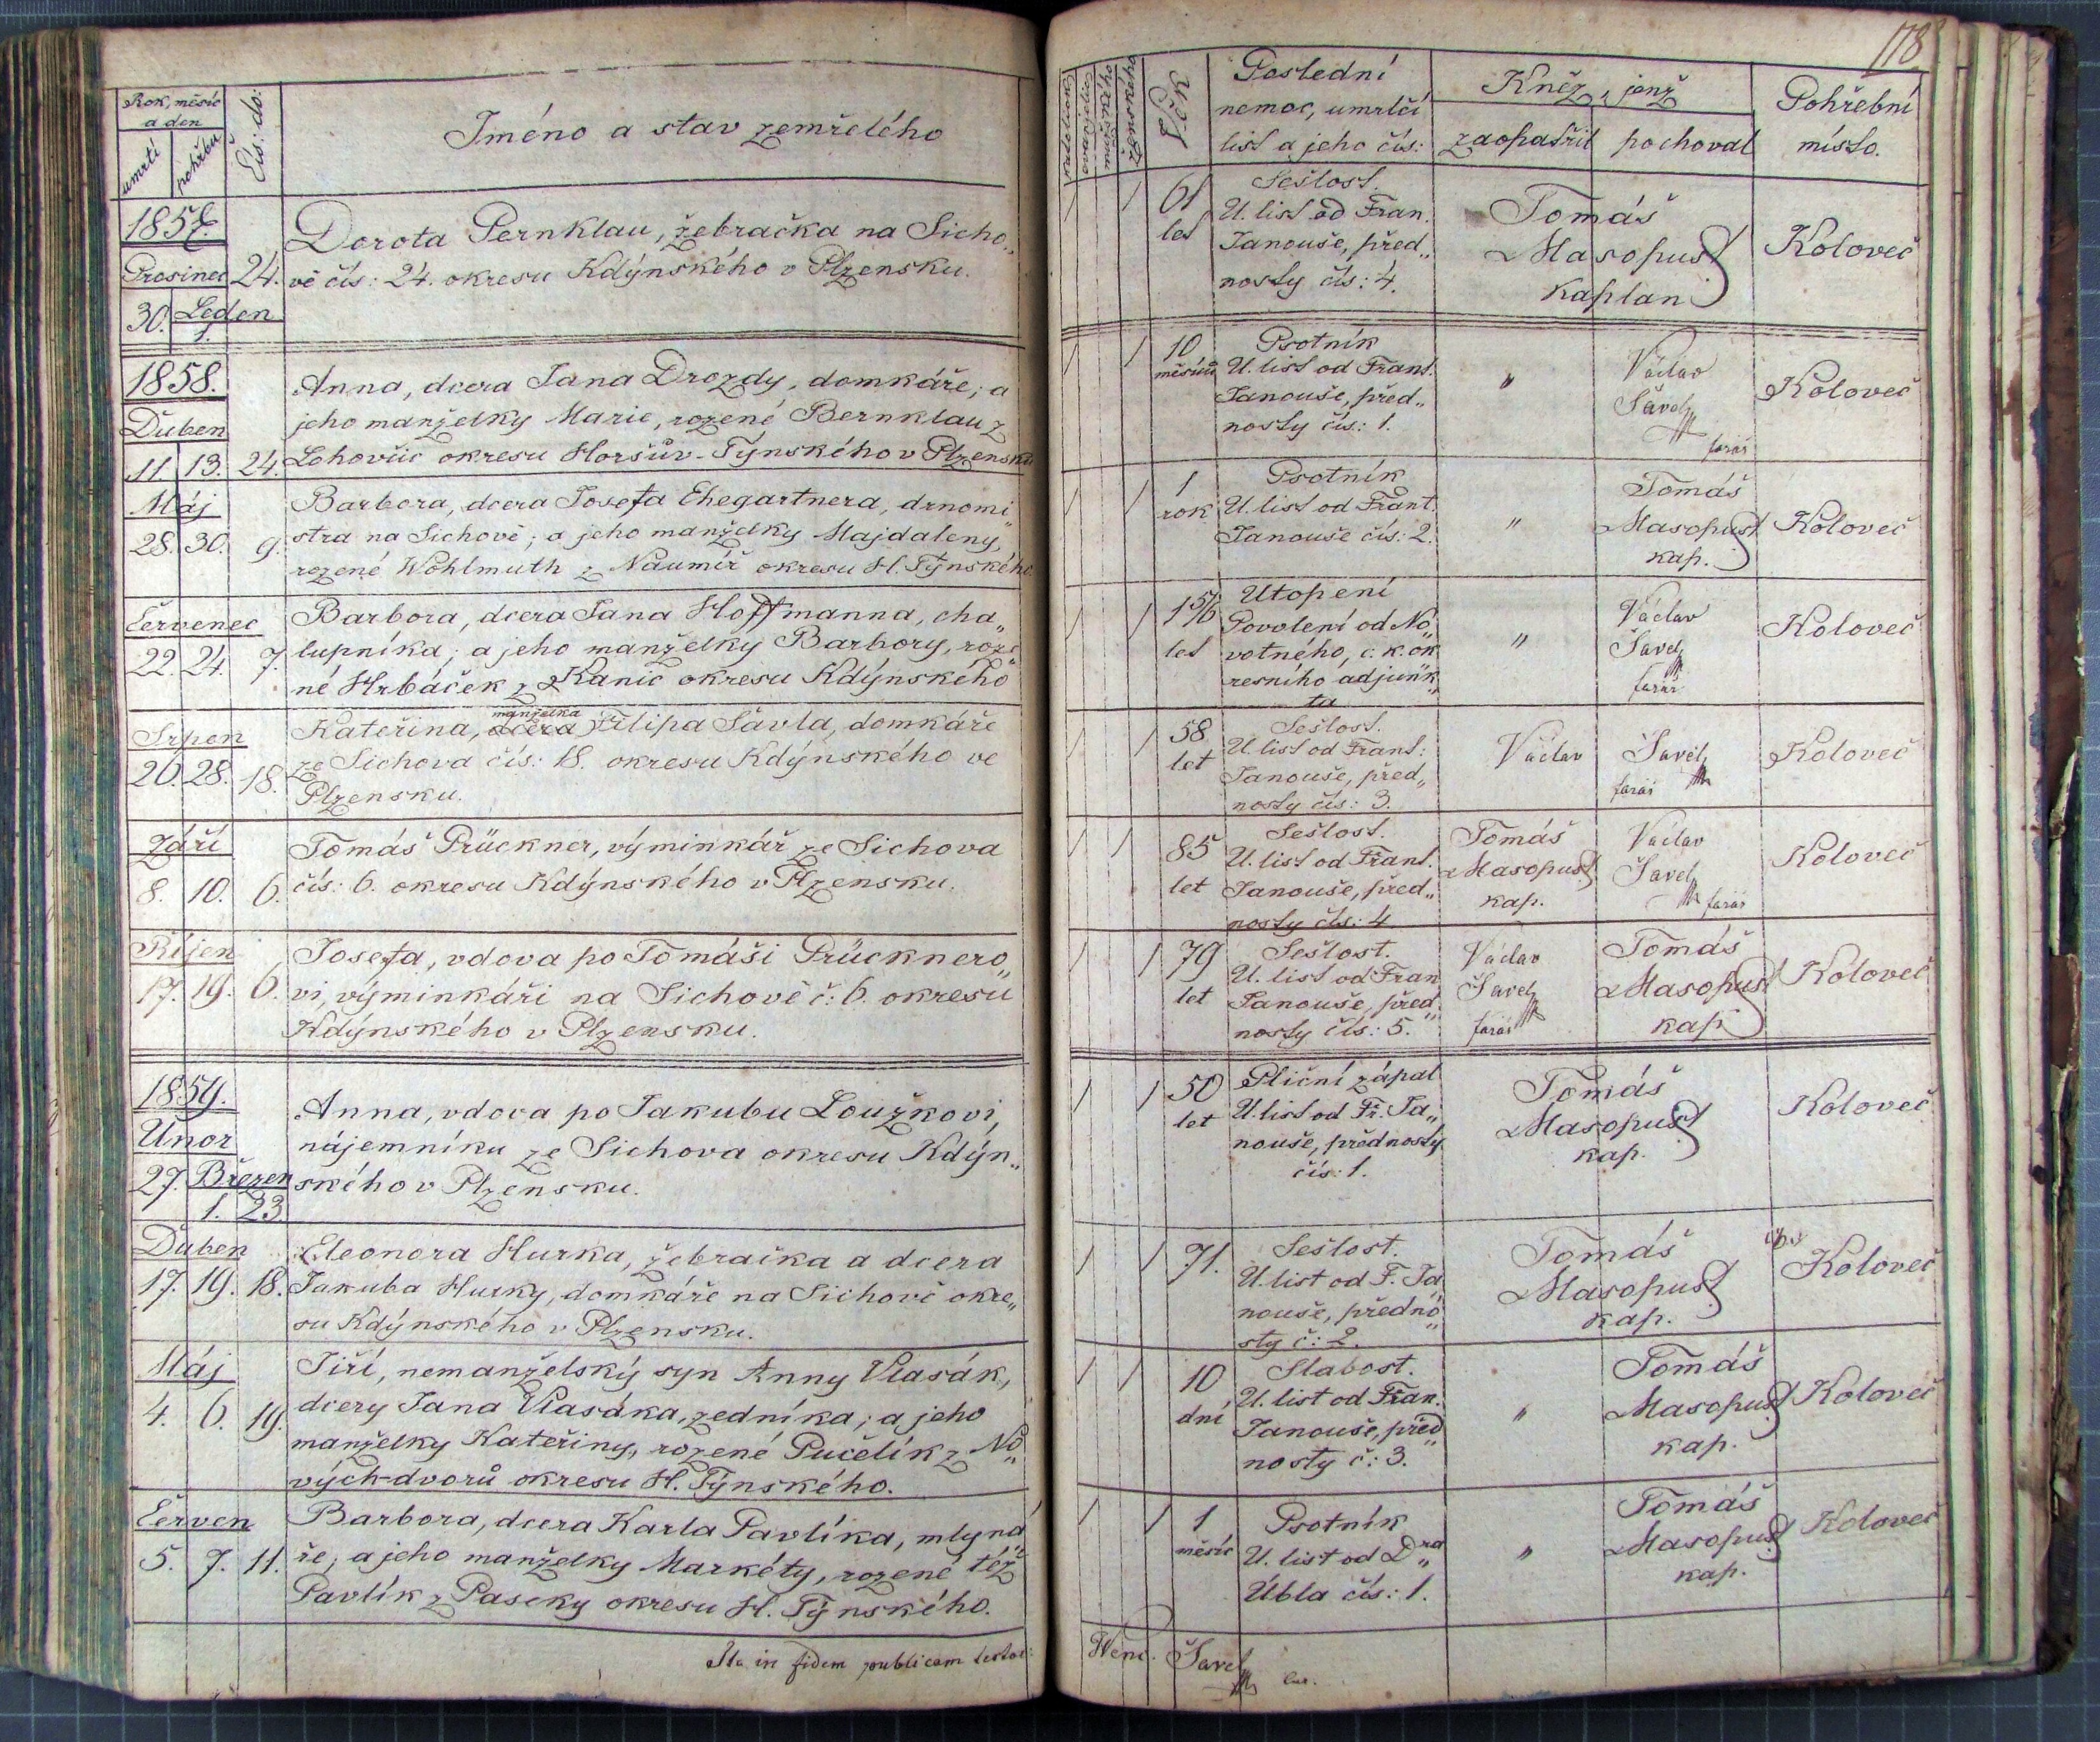 Rok, měsíc
a den
umrtí
pohřbu
Čís: do:
Jméno a stav zemřelého
1857
Prosinec
30.
Leden
1.
24.
Dorota Pernklau, žebračka na Sicho„
vě čís: 24. okresu Kdýnského v Plzensku.
1858.
Duben
11. 13. 24.
Anna, dcera Jana Drozdy, domkáře; a
jeho manželky Marie, rozené Bernklau z
Lohovčic okresu Horšův-Týnského v Plzensku
Máj
28. 30. 9.
Barbora, dcera Josefa Ehegartnera, drnomi„
stra na Sichově; a jeho manželky Majdaleny,
rozené Wohlmuth z Naumíř okresu H. Týnského.
Červenec
22. 24. 7.
Barbora, dcera Jana Hoffmanna, cha„
lupníka; a jeho manželky Barbory, roze„
né Hrbáček z Kanic okresu Kdýnského
Srpen
20. 28. 18.
manželka
Kateřina, dcera Filipa Šavla, domkáře
ze Sichova čís: 18. okresu Kdýnského ve
Plzensku.
Září
8. 10. 6.
Tomáš Prückner, výminkář ze Sichova
čís: 6. okresu Kdýnského v Plzensku.
Říjen
17. 19. 6.
Josefa, vdova po Tomáši Prücknero„
vi, výminkáři na Sichově č: 6. okresu
Kdýnského v Plzensku.
1859.
Unor
27. Březen
1. 23.
Anna, vdova po Jakubu Loužkovi,
nájemníku ze Sichova okresu Kdýn„
ského v Plzensku.
Duben
17. 19. 18.
Eleonora Hurka, žebračka a dcera
Jakuba Hurky, domkáře na Sichově okre„
su Kdýnského v Plzensku.
Máj
4. 6. 19.
Jiří, nemanželský syn Anny Vlasák,
dcery Jana Vlasáka, zedníka; a jeho
manželky Kateřiny, rozené Pučelík z No„
vých-dvorů okresu H. Týnského.
Červen
5. 7. 11.
Barbora, dcera Karla Pavlíka, mlyná„
ře; a jeho manželky Markéty, rozené též
Pavlík z Paseky okresu H. Týnského.
Ita in fidem publicam testor:
178
Katolické
Věk
Poslední
nemoc, umrlčí
list a jeho čís:
Kněz, jenž
zaopatřil
pochoval
Pohřební
místo.
61
let
Sešlost.
U. list od Fran.
Janouše, před„
nosty čís: 4.
Tomáš
Masopust
kaplan
Koloveč
10
měsíců
Psotník
U. list od Frant.
Janouše, před„
nosty čís: 1.
"
Václav
Šavel
farář
Koloveč
1
rok
Psotník
U. list od Frant.
Janouše čís: 2.
"
Tomáš
Masopust
kap.
Koloveč
1 5/6
let
Utopení
Povolení od No„
votného, c. k. ok„
resního adjunk„
ta
"
Václav
Šavel
farář
Koloveč
58
let
Sešlost.
U. list od Frant:
Janouše, před„
nosty čís: 3.
Václav Šavel
farář
Koloveč
85
let
Sešlost.
U. list od Frant.
Janouše, před„
nosty čís: 4
Tomáš
Masopust
kap.
Václav
Šavel
farář
Koloveč
79
let
Sešlost.
U. list od Fran
Janouše, před„
nosty čís: 5.
Václav
Šavel
farář
Tomáš
Masopust
kap
Koloveč
50
let
Pliční zápal
U. list od Fr. Ja„
nouše, přednosty
čís: 1.
Tomáš
Masopust
kap.
Koloveč
71.
Sešlost.
U. list od F. Ja„
nouše, předno„
sty č: 2.
Tomáš
Masopust
kap.
Koloveč
10
dní
Slabost.
U. list od Fran.
Janouše, před„
nosty č: 3.
"
Tomáš
Masopust
kap.
Koloveč
1
měsíc
Psotník
U. list od Dra„
Úbla čís: 1.
"
Tomáš
Masopust
kap.
Koloveč
Wenc. Šavel